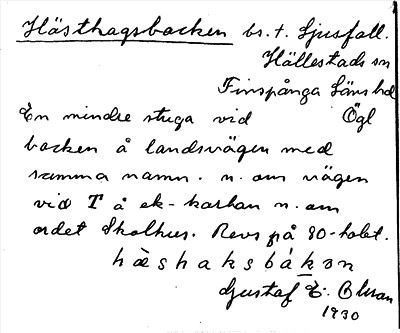 Hästhagsbacken bs. t. Ljusfall.
Hällestads sn
Finspånga läns hd
En mindre stuga vid Ögl
backen å landsvägen med
samma namn. n. om vägen
vid T å ek-kartan n. om
ordet Skolhus. Revs på 80-talet.
hæshaksbákɜn
Gustaf E:
1930